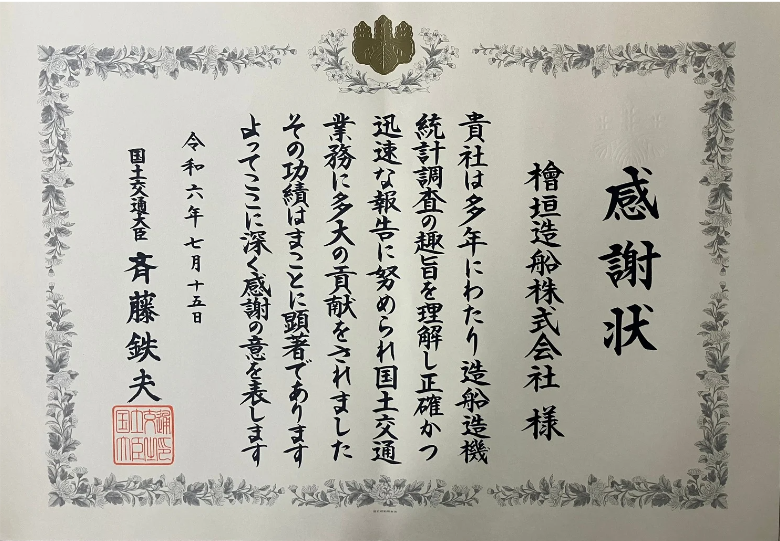 感謝状
檜垣造船株式会社 様
貴社は多年にわたり造船造機
統計調査の趣旨を理解し正確かつ
迅速な報告に努められ国土交通
業務に多大の貢献をされました
その功績はまことに顕著であります
よってここに深く感謝の意を表します
令和六年七月十五日
国土交通大臣 斉藤鉄夫
国土交通大臣之印